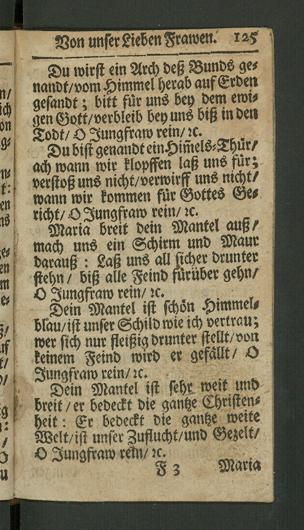 Von unser Lieben Frawen. 125
Du wirst ein Arch deß Bunds ge-
nandt/vom Himmel herab auf Erden
gesandt; bitt für uns bey dem ewi-
gen Gott/verbleib bey uns biß in den
Todt/ O Jungfraw rein/ ꝛc.
Du bist genandt ein Him̃els-Thür/
ach wann wir klopffen laß uns für;
verstoß uns nicht/verwirff uns nicht/
wann wir kommen für Gottes Ge-
richt/ O Jungfraw rein/ ꝛc.
Maria breit dein Mantel auß/
mach uns ein Schirm und Maur
darauß: Laß uns all sicher drunter
stehn/ biß alle Feind fürüber gehn/
O Jungfraw rein/ ꝛc.
Dein Mantel ist schön Himmel-
blau/ist unser Schild wie ich vertrau;
wer sich nur fleißig drunter stellt/von
keinem Feind wird er gefällt/ O
Jungfraw rein/ ꝛc.
Dein Mantel ist sehr weit und
breit/er bedeckt die gantze Christen-
heit: Er bedeckt die gantze weite
Welt/ist unser Zuflucht/und Gezelt/
O Jungfraw rein/ ꝛc.
F 3 Maria